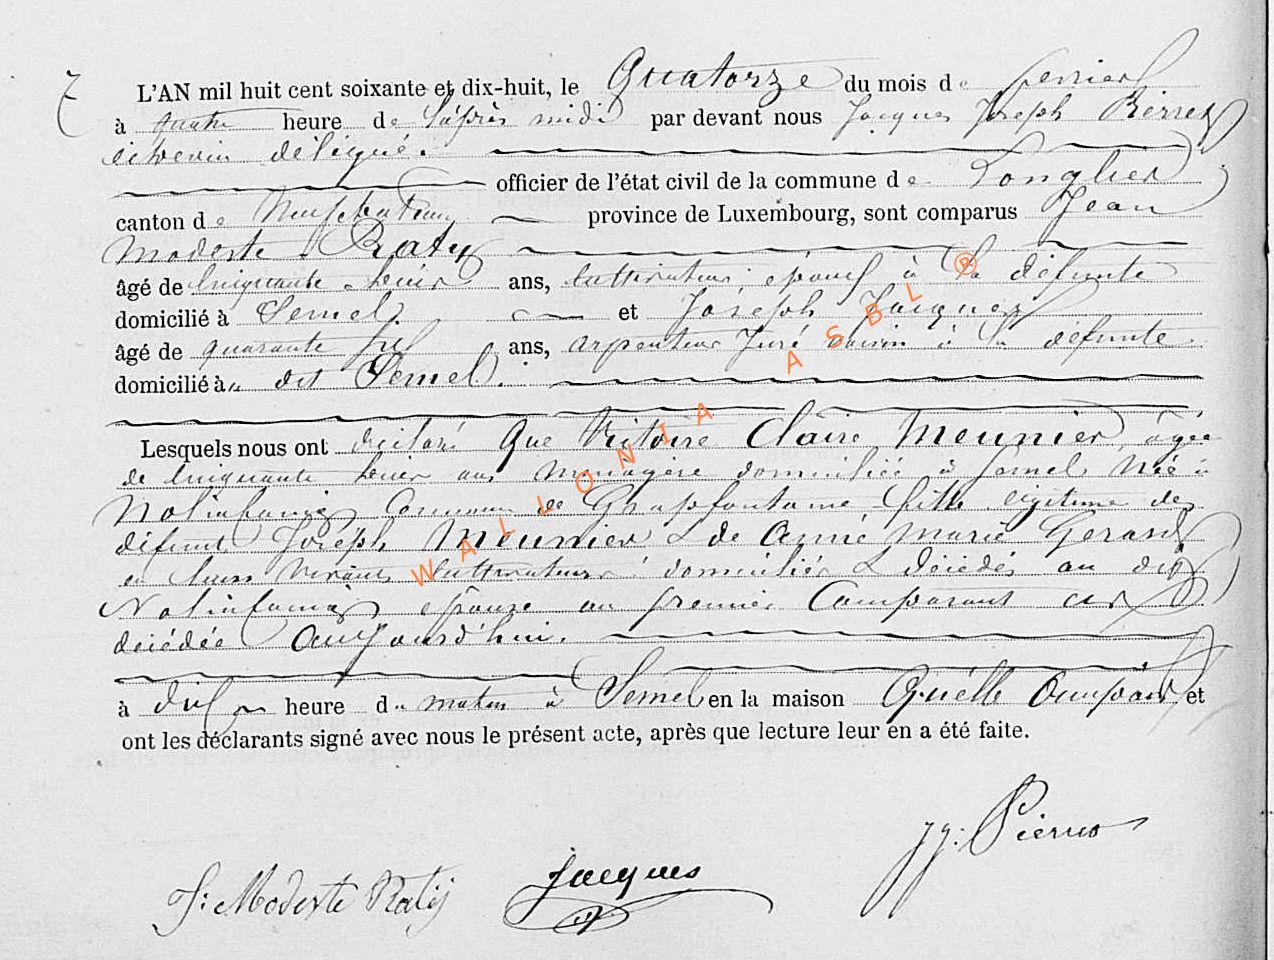 7
L'AN mil huit cent soixante et dix-huit, le Quatorze du mois de fevrier
à quatre heure de l'après midi par devant nous Jacques Joseph Pierret
échevin délégué.
officier de l'état civil de la commune de Longlier
canton de Neufchateau province de Luxembourg, sont comparus Jean
Modeste Raty
âgé de cinquante deux ans, cultivateur, époux à la défunte
domicilié à Semel et Joseph Jacques
âgé de quarante six ans, arpenteur juré voisin à la défunte
domicilié à dit Semel.
Lesquels nous ont déclaré que Victoire Claire Meunier, agée
de cinquante deux ans ménagère domiciliée à Semel, Née à
Nolinfaing Commune de Grapfontaine fille légitime de
défunt Joseph Meunier & de Anne Marie Gerard
en leurs vivants cultivateurs domiciliés & décédés au dit
Nolinfaing épouse au premier Comparant est
décédée aujourd'hui.
à dix heure du matin à Semel en la maison Qu'elle Occupait et
ont les déclarants signé avec nous le présent acte, après que lecture leur en a été faite.
J: Modeste Raty Jacques JJ: Pierret
WALLONIA ASBL ®